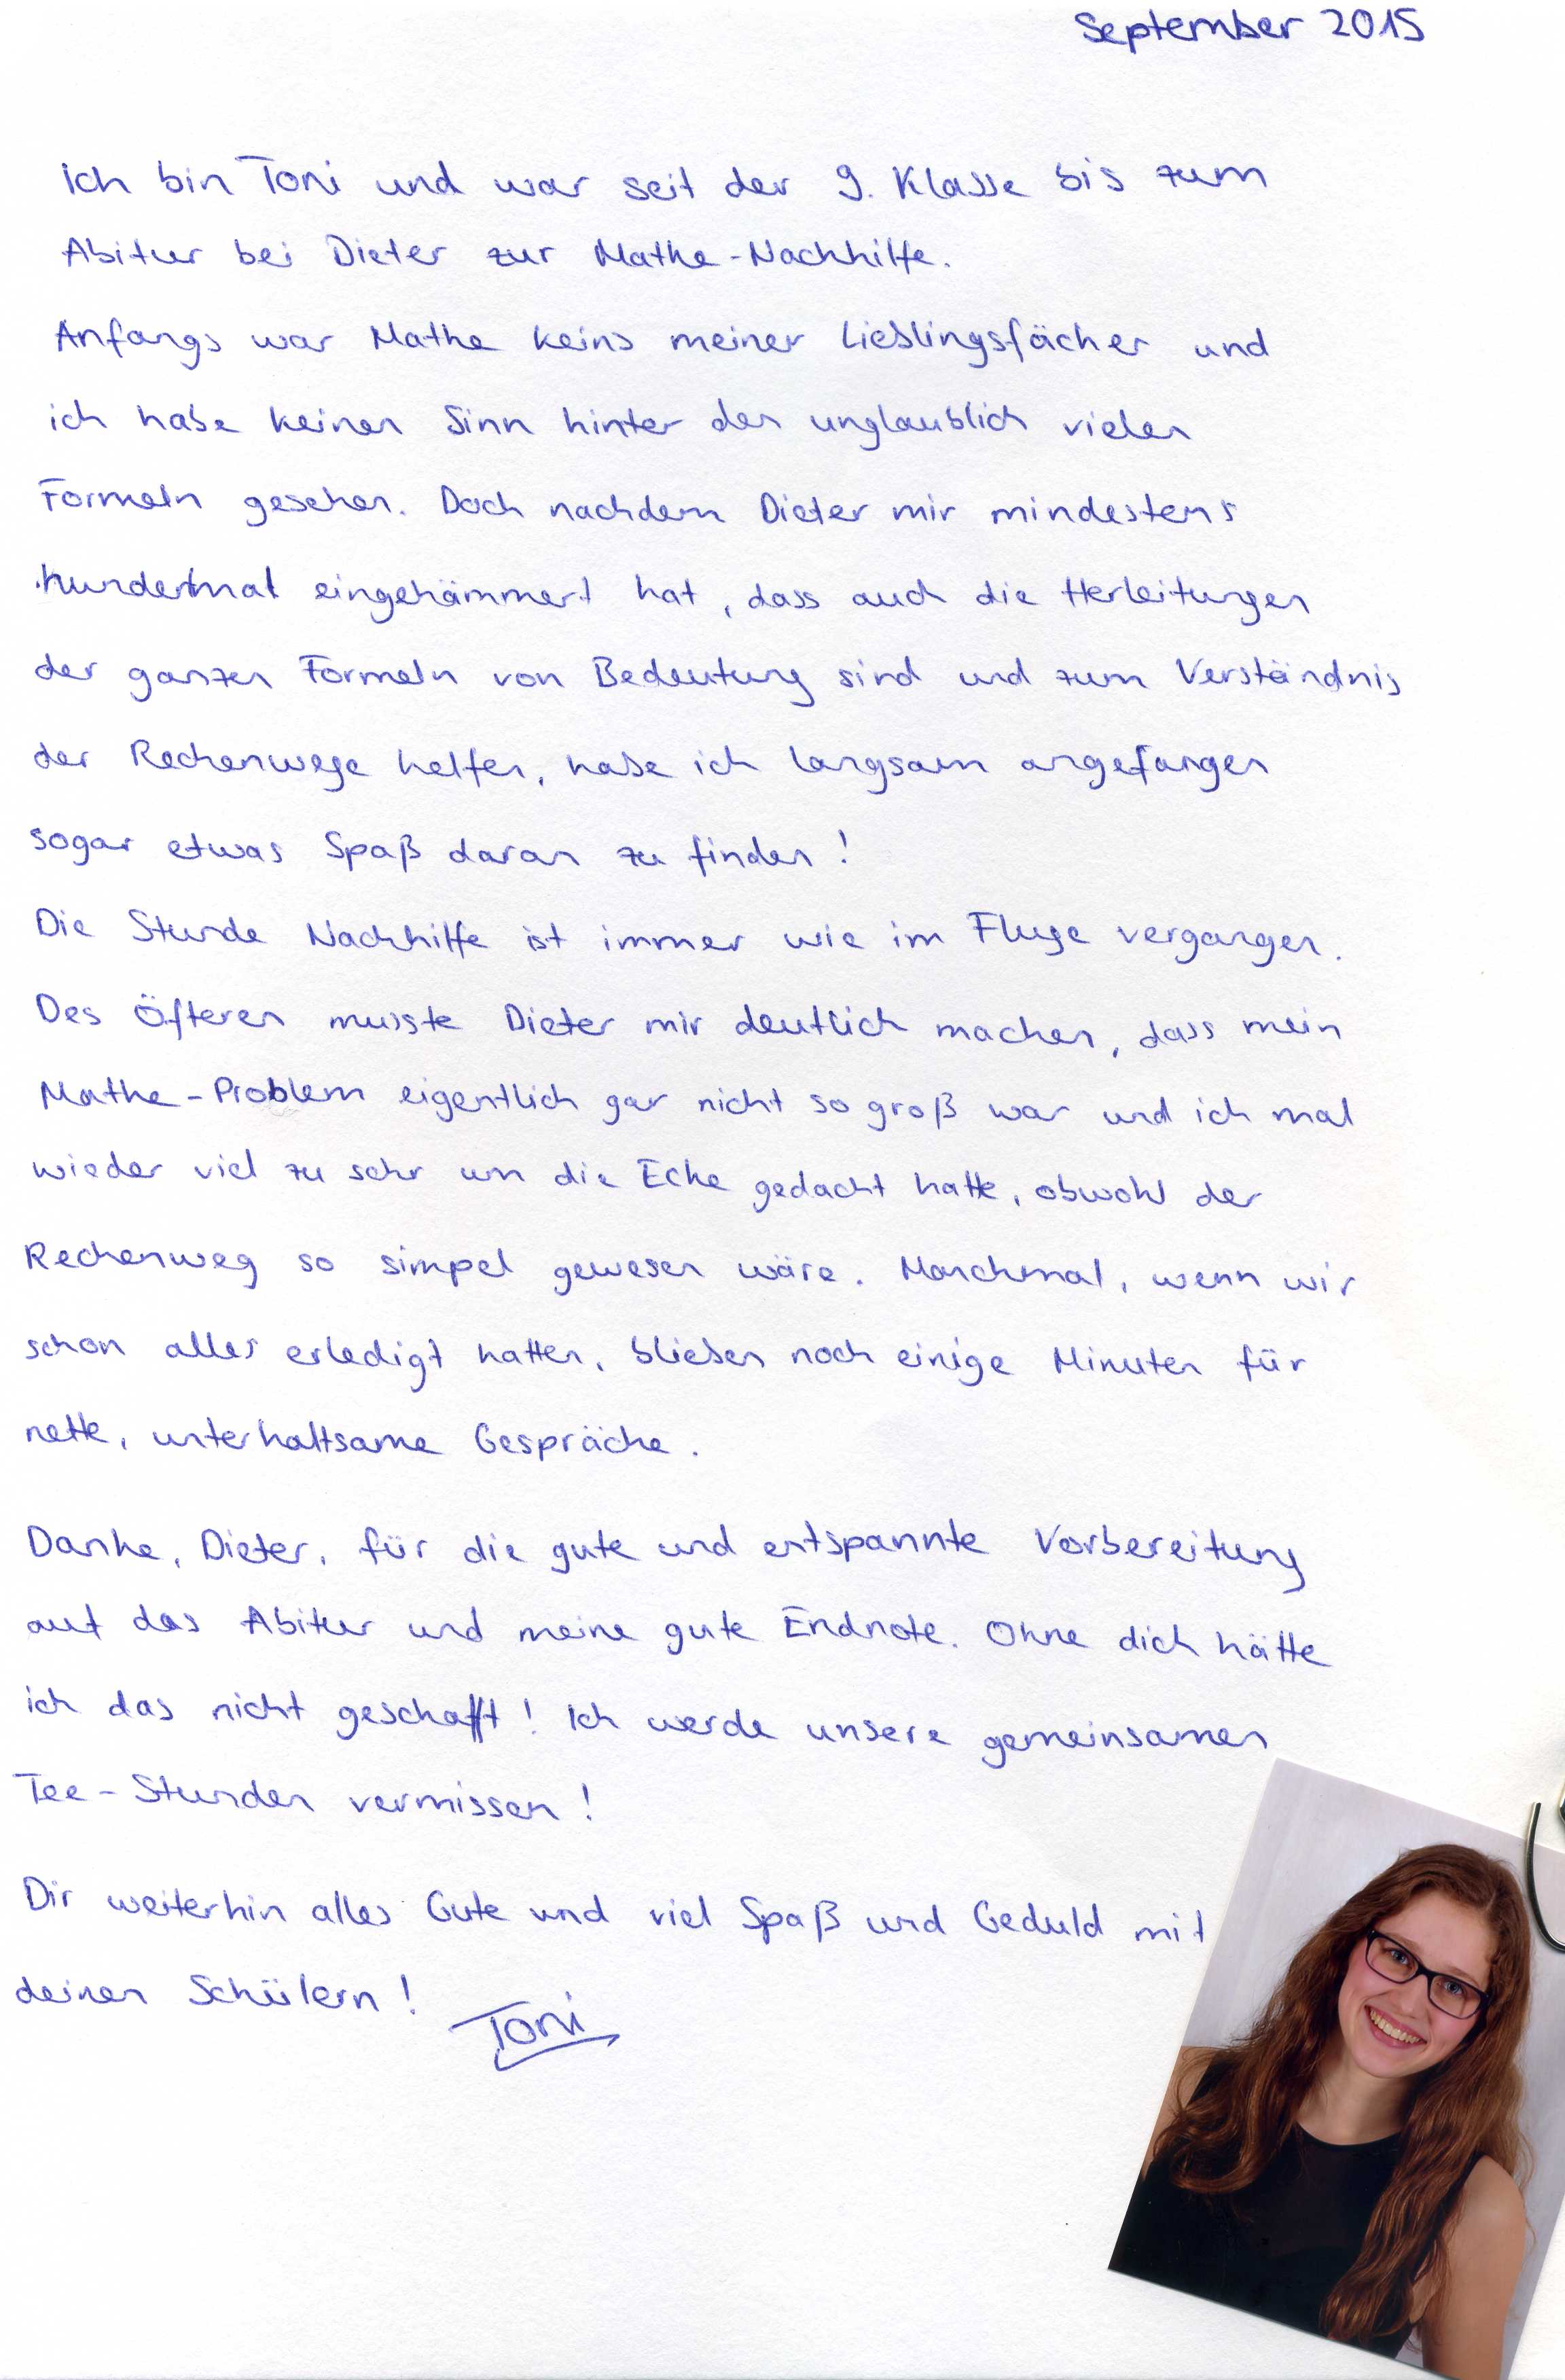 September 2015
Ich bin Toni und war seit der 9. Klasse bis zum
Abitur bei Dieter zur Mathe-Nachhilfe.
Anfangs war Mathe keins meiner Lieblingsfächer und
ich habe keinen Sinn hinter den unglaublich vielen
Formeln gesehen. Doch nachdem Dieter mir mindestens
hundertmal eingehämmert hat, dass auch die Herleitungen
der ganzen Formeln von Bedeutung sind und zum Verständnis
der Rechenwege helfen, habe ich langsam angefangen
sogar etwas Spaß daran zu finden!
Die Stunde Nachhilfe ist immer wie im Fluge vergangen.
Des Öfteren musste Dieter mir deutlich machen, dass mein
Mathe-Problem eigentlich gar nicht so groß war und ich mal
wieder viel zu sehr um die Ecke gedacht hatte, obwohl der
Rechenweg so simpel gewesen wäre. Manchmal, wenn wir
schon alles erledigt hatten, blieben noch einige Minuten für
nette, unterhaltsame Gespräche.
Danke, Dieter, für die gute und entspannte Vorbereitung
auf das Abitur und meine gute Endnote. Ohne dich hätte
ich das nicht geschafft! Ich werde unsere gemeinsamen
Tee-Stunden vermissen!
Dir weiterhin alles Gute und viel Spaß und Geduld mit
deinen Schülern!
Toni